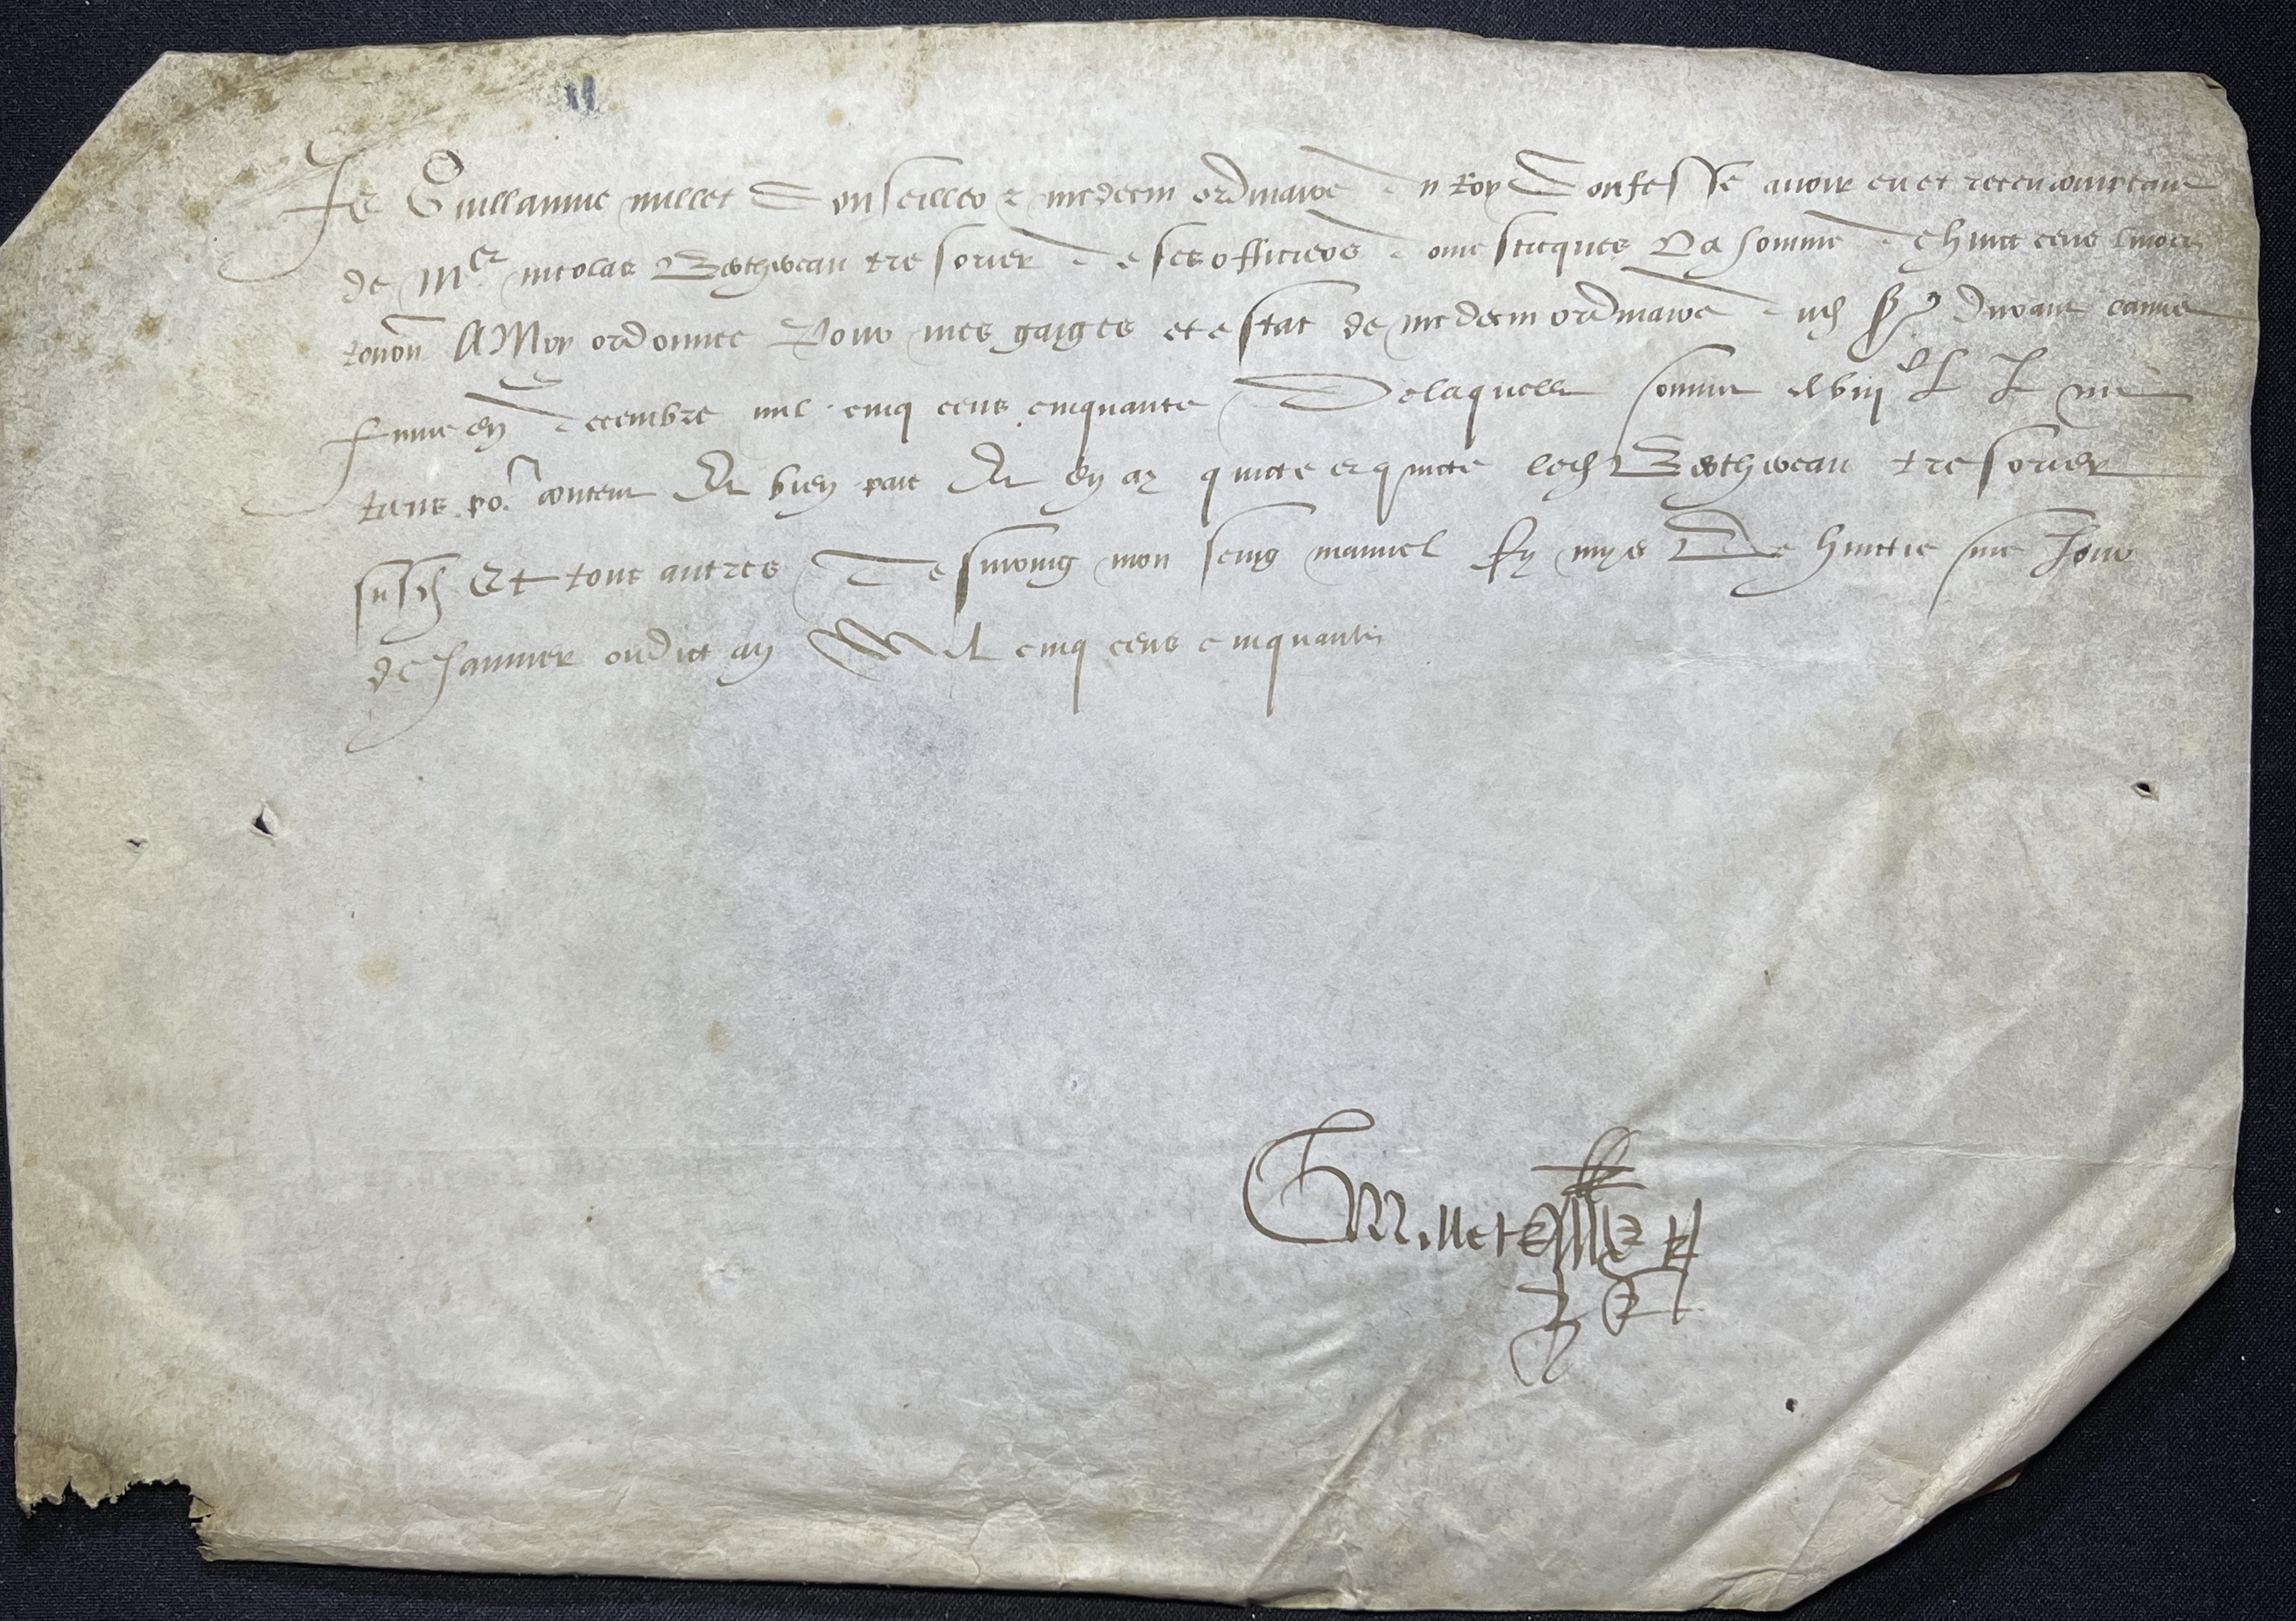 Je Guillaume millet Conseiller & medecin ordinaire du Roy Confesse avoir eu et receu comptant
de Me nicolas Berthereau tresorier de ses officiers domesticques La somme de huict cens livres
tourn A Moy ordonnee Pour mes gaiges et estat de medecin ordinaire dud sr durant l'annee
finie en decembre mil cinq cens cinquante De laquelle somme de viiic L t me
tiens por content Et bien paie Et en ay quicte et quicte led Berthereau tresorier
susd Et tous autres Tesmoing mon seing manuel Cy mys Le huictiesme Jour
de Janvier oudict an Mil cinq cens cinquante
GMillet